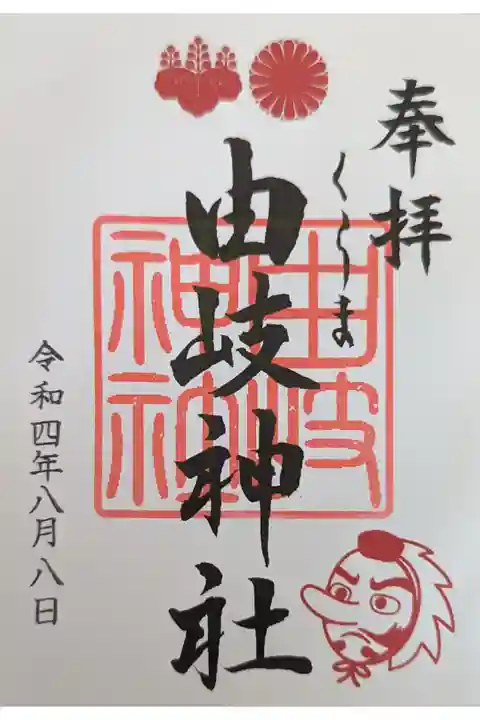 奉拝
くらま
由岐神社
由岐神社
令和四年八月八日